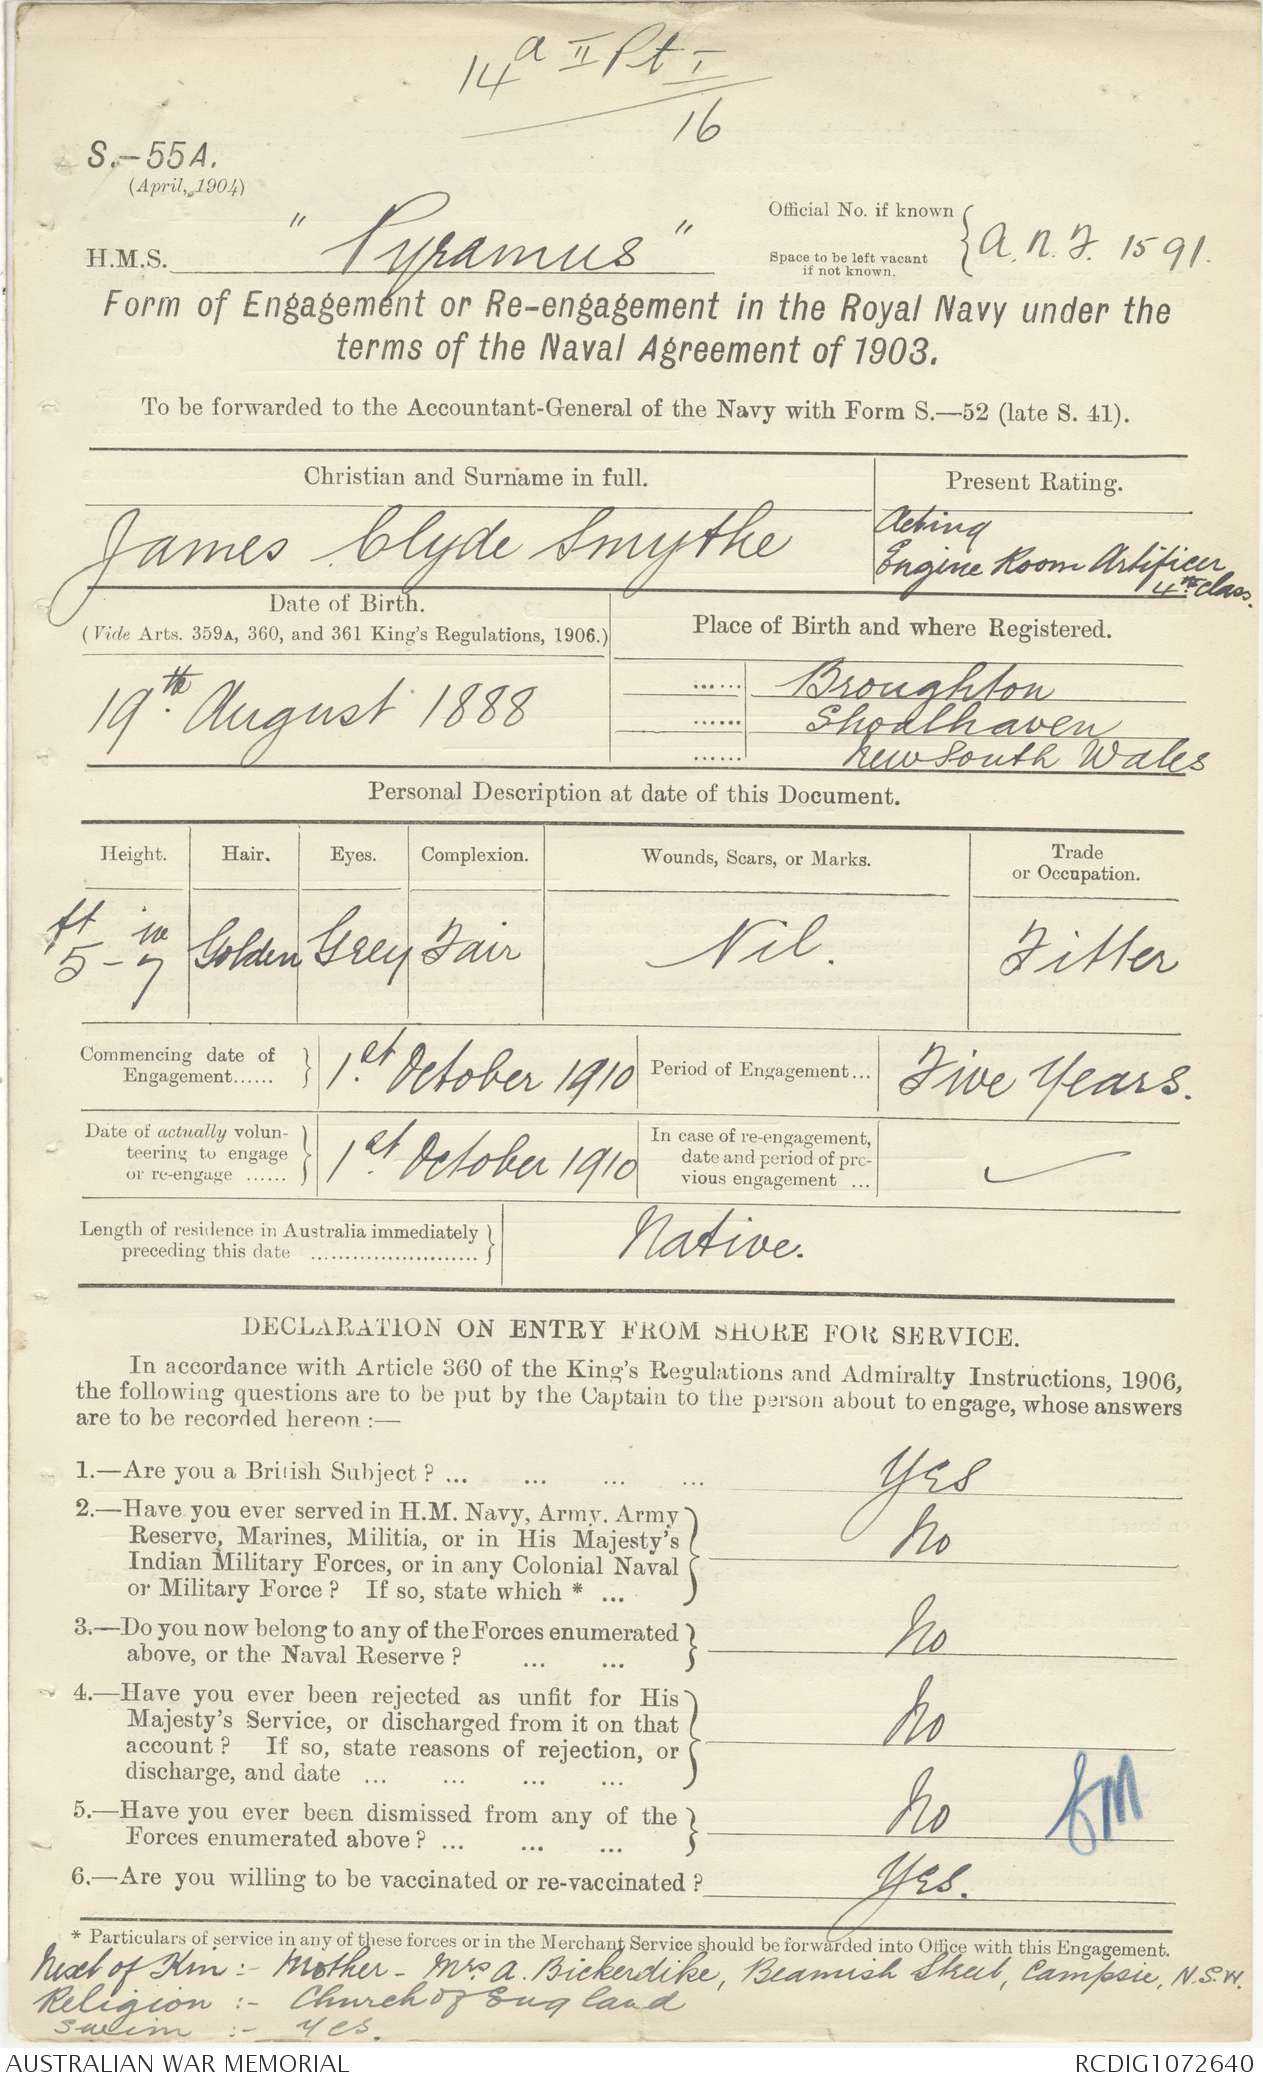 14a II Pt I
16
S.-55A.
(April, 1904)
H.M.S. "Pyramus"
Official No. if known
Space to be left vacant
if not known.
A.N.F. 1591.
Form of Engagement or Re-engagement in the Royal Navy under the
terms of the Naval Agreement of 1903.
To be forwarded to the Accountant-General of the Navy with Form S.—52 (late S. 41).
Christian and Surname in full.
Present Rating.
James Clyde Smythe
Acting
Engine Room Artificer
4th Class.
Date of Birth.
(Vide Arts. 359A, 360, and 361 King's Regulations, 1906.)
Place of Birth and where Registered.
19th August 1888
...... Broughton
...... Shoalhaven
...... New South Wales
Personal Description at date of this Document.
Height. Hair. Eyes. Complexion. Wounds, Scars, or Marks. Trade
or Occupation.
ft in
5 - 7 Golden Grey Fair Nil. Fitter
Commencing date of
Engagement......
1st October 1910
Period of Engagement...
Five Years.
Date of actually volun-
teering to engage
or re-engage ......
1st October 1910
In case of re-engagement,
date and period of pre-
vious engagement ...
Length of residence in Australia immediately
preceding this date ........................
Native.
DECLARATION ON ENTRY FROM SHORE FOR SERVICE.
In accordance with Article 360 of the King's Regulations and Admiralty Instructions, 1906,
the following questions are to be put by the Captain to the person about to engage, whose answers
are to be recorded hereon :—
1.—Are you a British Subject ? ... ... ... ... Yes
2.—Have you ever served in H.M. Navy, Army, Army
Reserve, Marines, Militia, or in His Majesty's
Indian Military Forces, or in any Colonial Naval
or Military Force ? If so, state which * ...
No
3.—Do you now belong to any of the Forces enumerated
above, or the Naval Reserve ? ... ...
No
4.—Have you ever been rejected as unfit for His
Majesty's Service, or discharged from it on that
account ? If so, state reasons of rejection, or
discharge, and date ... ... ... ...
No
5.—Have you ever been dismissed from any of the
Forces enumerated above ? ... ... ...
No
6.—Are you willing to be vaccinated or re-vaccinated ? Yes.
* Particulars of service in any of these forces or in the Merchant Service should be forwarded into Office with this Engagement.
Next of Kin :- Mother - Mrs A. Bickerdike, Beamish Street, Campsie, N.S.W.
Religion :- Church of England
Swim :- Yes.
AUSTRALIAN WAR MEMORIAL
RCDIG1072640